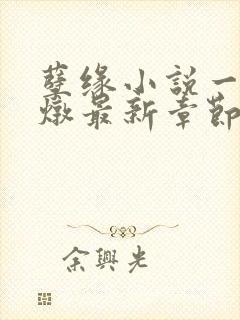 孽缘小説一
燉最新章節
余興光